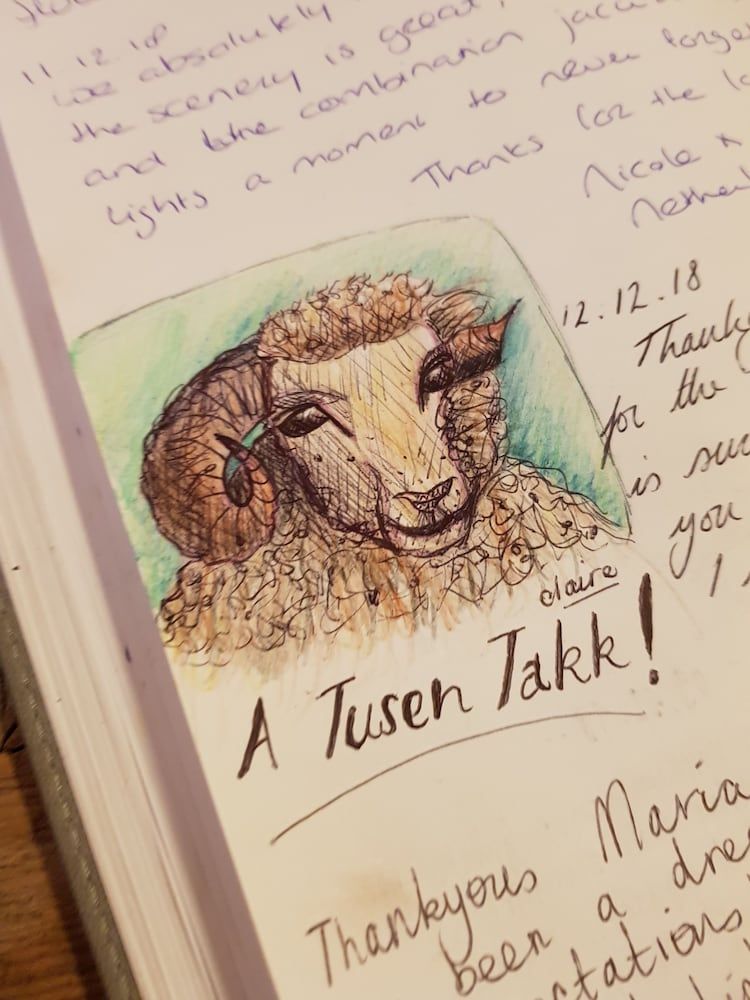 11.12.18
we absolutely
the scenery is great,
and bthe combination jacu
lights a moment to never forge
Thanks for the lo
Nicole x
Netherl
12.12.18
Thanky
for the
is sur
you
I
claire
A Tusen Takk!
Thankyous Maria
been a dre
ctations